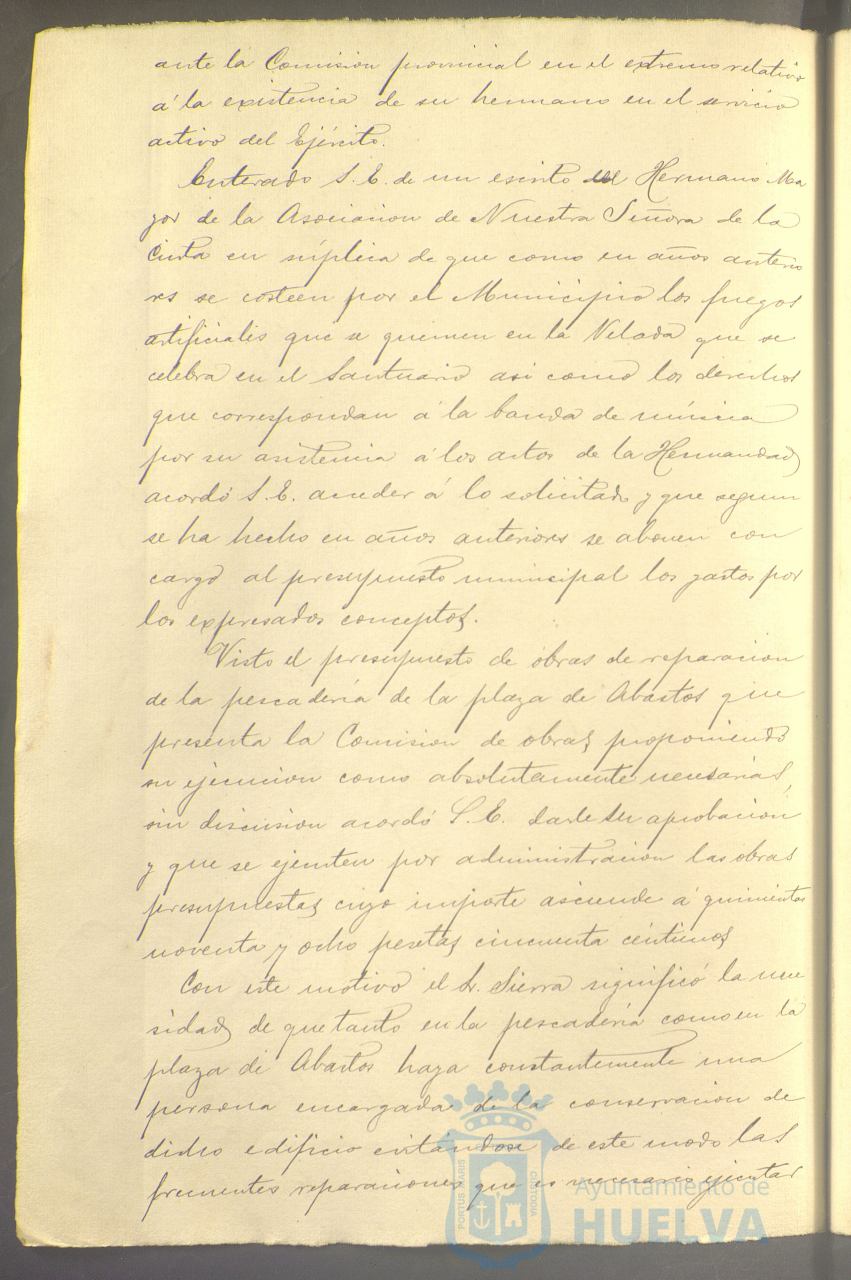 ante la Comision provincial en el extremo relativo
á la existencia de su hermano en el servicio
activo del Ejército.
Enterado S. E. de un escrito del Hermano Ma
yor de la Asociacion de Nuestra Señora de la
Cinta en súplica de que como en años anterio
res se costeen por el Municipio los fuegos
artificiales que se quemen en la Velada que se
celebra en el Santuario asi como los derechos
que correspondan á la banda de música
por su asistencia á los actos de la Hermandad,
acordó S. E. acceder á lo solicitado y que segun
se ha hecho en años anteriores se abonen con
cargo al presupuesto municipal los gastos por
los expresados conceptos.
Visto el presupuesto de obras de reparacion
de la pescadería de la plaza de Abastos que
presenta la Comision de obras proponiendo
su ejecucion como absolutamente necesarias,
sin discusion acordó S. E. darle su aprobacion
y que se ejecuten por administracion las obras
presupuestas cuyo importe asciende á quinientas
noventa y ocho pesetas cincuenta céntimos
Con este motivo el Sr. Sierra significó la nece
sidad de que tanto en la pescadería como en la
plaza de Abastos haya constantemente una
persona encargada de la conservacion de
dicho edificio evitándose de este modo las
frecuentes reparaciones que es necesario ejecutar
PORTUS MARIS
CUSTODIA
Ayuntamiento de
HUELVA